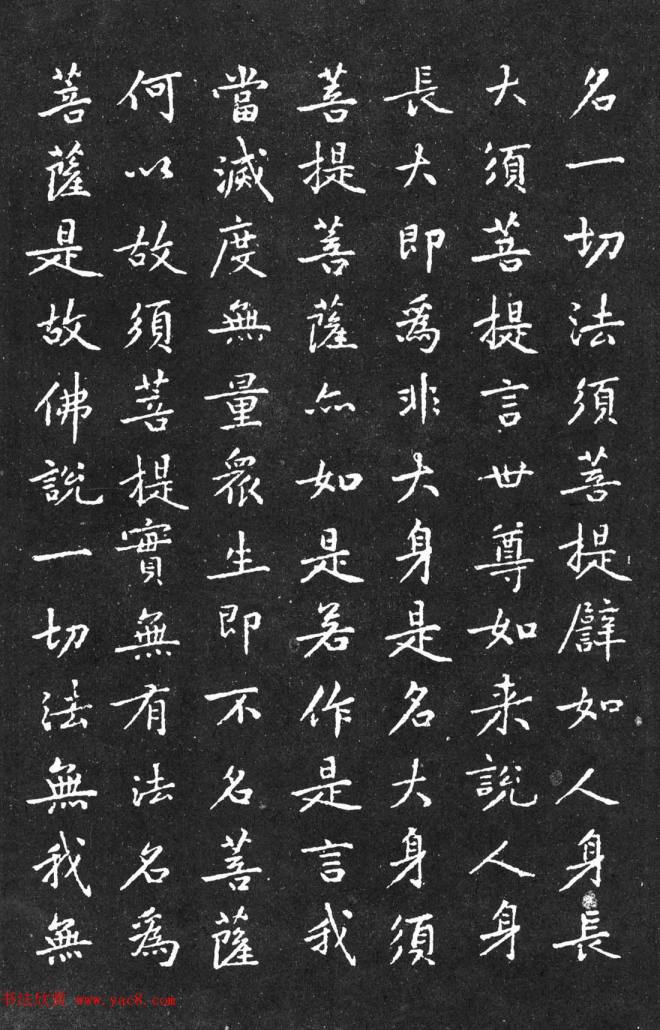 名一切法須菩提譬如人身長
大須菩提言世尊如来說人身
長大即爲非大身是名大身須
菩提菩薩亦如是若作是言我
當滅度無量眾生即不名菩薩
何以故須菩提實無有法名爲
菩薩是故佛說一切法無我無
书法欣赏 www.yac8.com